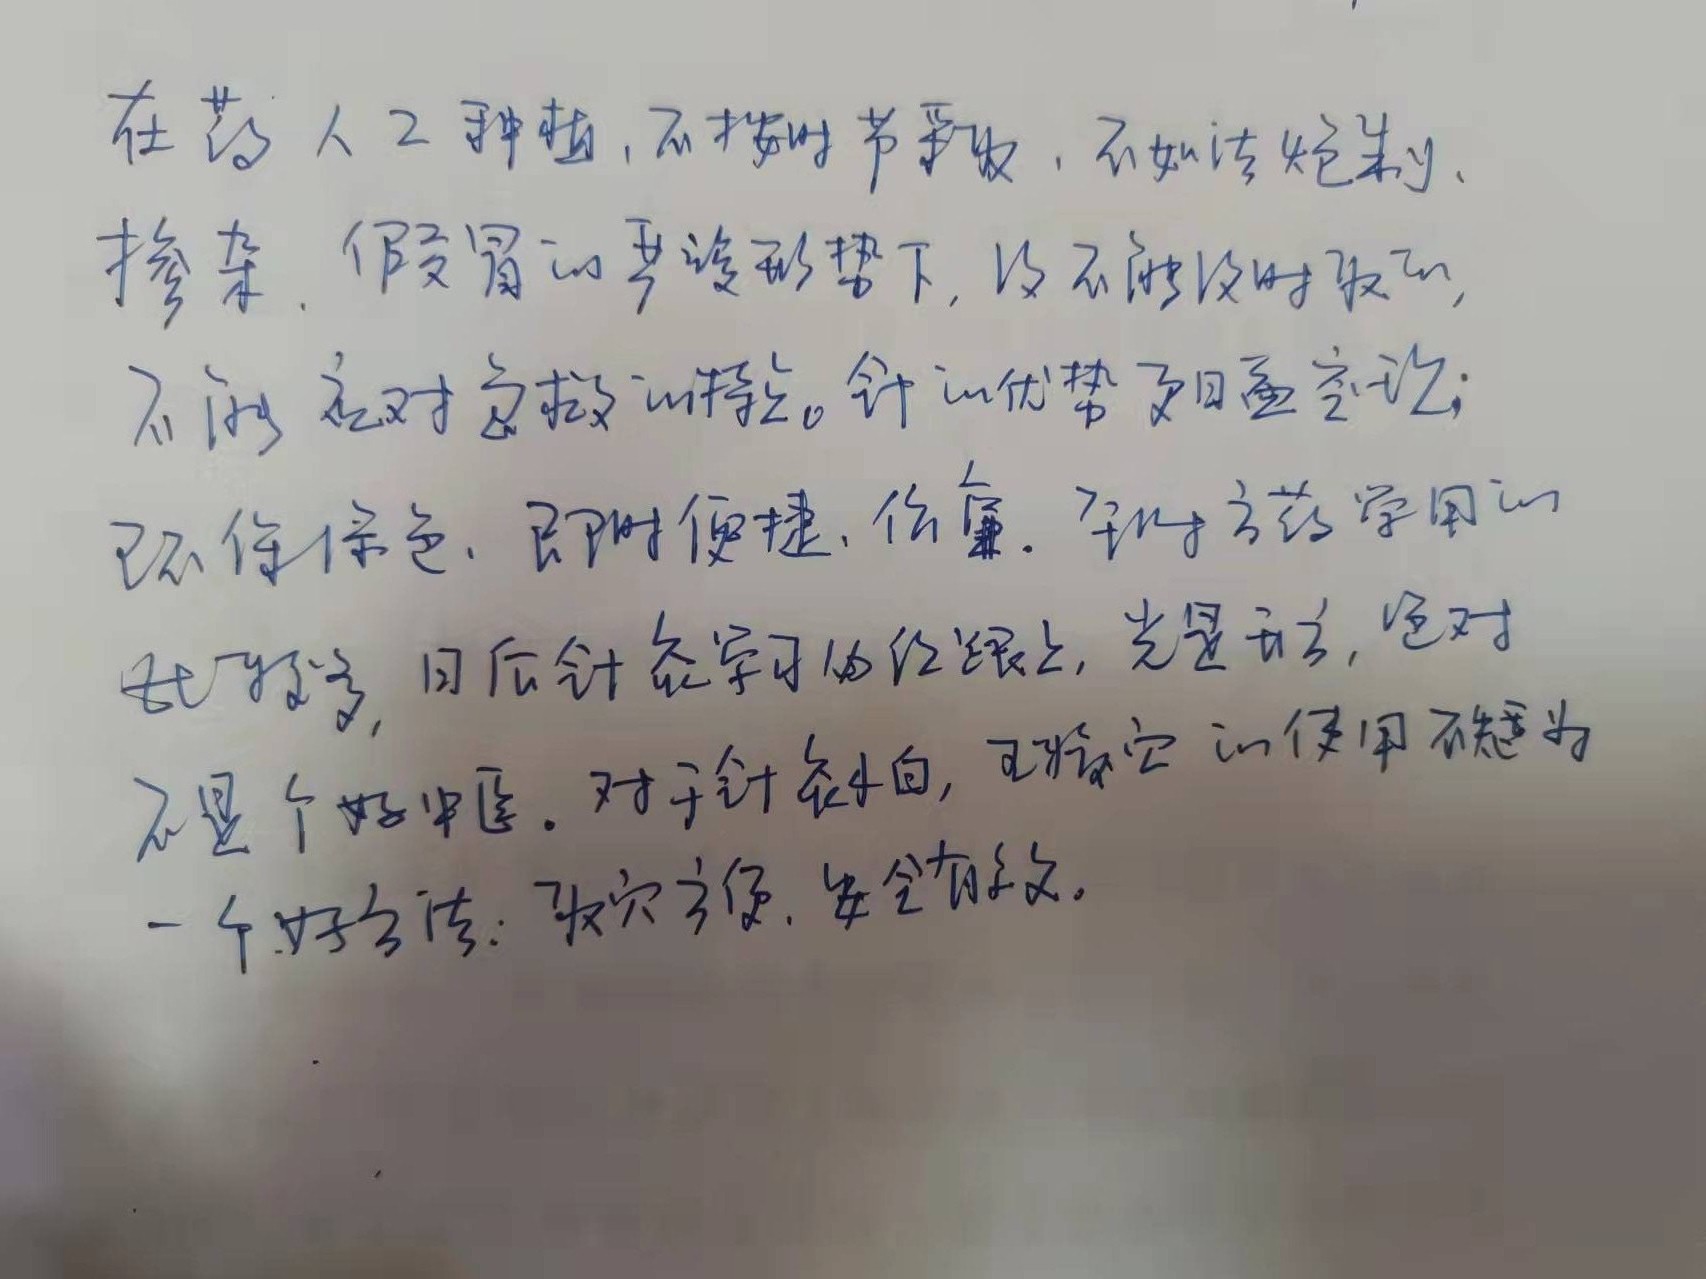 在药人工种植,不按时节采收,不如法炮制、
掺杂、假冒的严峻形势下,没不能没时取的,
不能应对急救的特点。针的优势更日益突显;
环保绿色、即时便捷、价廉。平时方药学用的
比较多,日后针灸学习必须跟上,光是开方,绝对
不是个好中医。对于针灸小白,王效穴的使用不失为
一个好方法:取穴方便、安全有效。